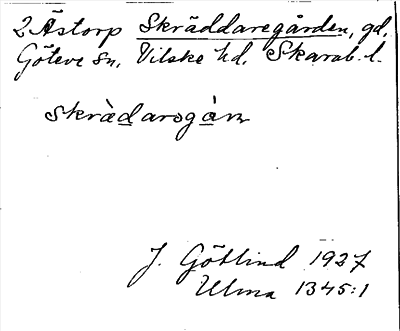 2 Åstorp Skräddaregården, gd,
Göteve sn, Vilske hd, Skarab. l.
skrädarsgàn
J. Götlind 1927
Ulma 1345:1